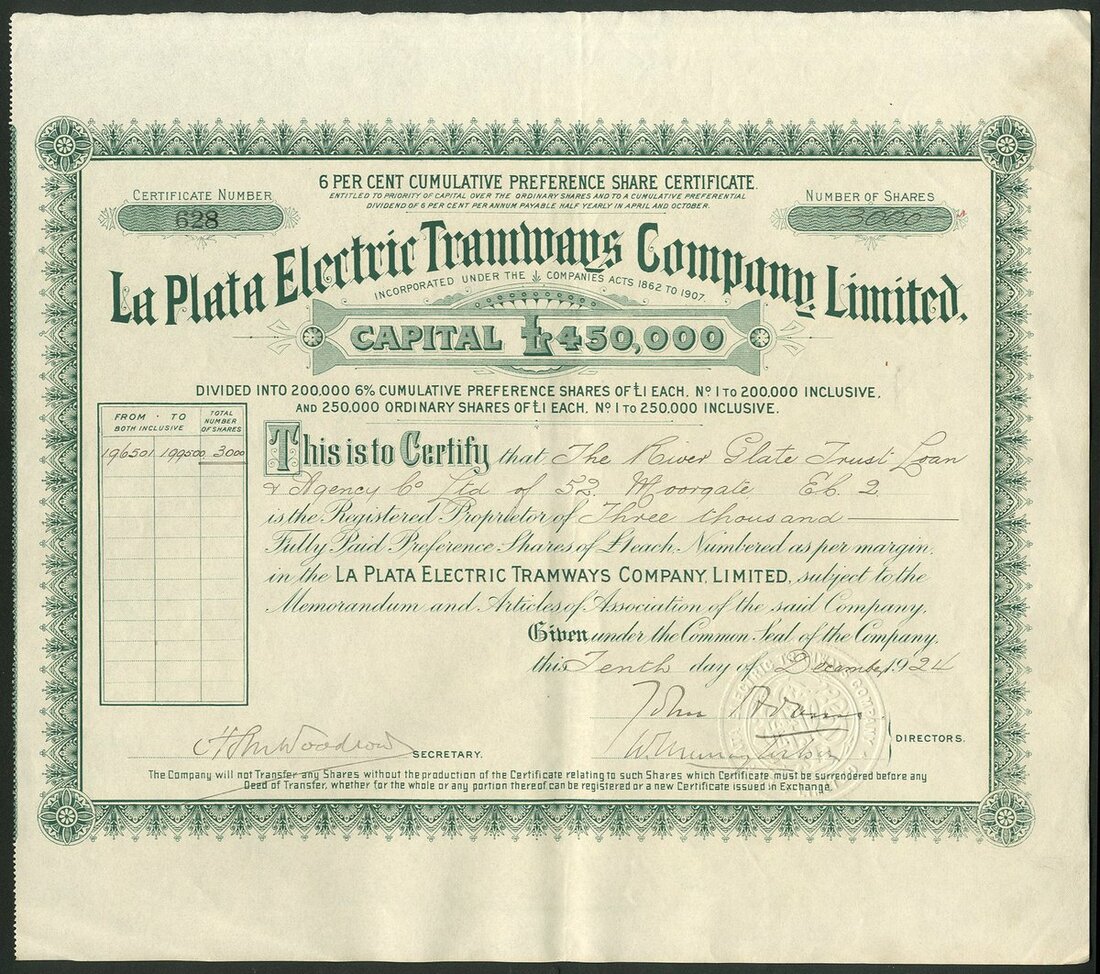 6 PER CENT CUMULATIVE PREFERENCE SHARE CERTIFICATE.
ENTITLED TO PRIORITY OF CAPITAL OVER THE ORDINARY SHARES AND TO A CUMULATIVE PREFERENTIAL
DIVIDEND OF 6 PER CENT PER ANNUM PAYABLE HALF YEARLY IN APRIL AND OCTOBER.
CERTIFICATE NUMBER
628
NUMBER OF SHARES
3000
La Plata Electric Tramways Company, Limited.
INCORPORATED UNDER THE COMPANIES ACTS 1862 TO 1907.
CAPITAL £450,000
DIVIDED INTO 200,000 6% CUMULATIVE PREFERENCE SHARES OF £1 EACH, No 1 TO 200,000 INCLUSIVE,
AND 250,000 ORDINARY SHARES OF £1 EACH. No 1 TO 250,000 INCLUSIVE.
FROM · TO
BOTH INCLUSIVE
TOTAL NUMBER OF SHARES
196501 199500 3000
This is to Certify that The River Plate Trust Loan
& Agency Co Ltd of 52 Moorgate E.C. 2
is the Registered Proprietor of Three thousand
Fully Paid Preference Shares of £1 each, Numbered as per margin,
in the LA PLATA ELECTRIC TRAMWAYS COMPANY, LIMITED, subject to the
Memorandum and Articles of Association of the said Company,
Given under the Common Seal of the Company,
this Tenth day of December 1924
John Adams
DIRECTORS.
SECRETARY.
The Company will not Transfer any Shares without the production of the Certificate relating to such Shares which Certificate must be surrendered before any
Deed of Transfer, whether for the whole or any portion thereof, can be registered or a new Certificate issued in Exchange.